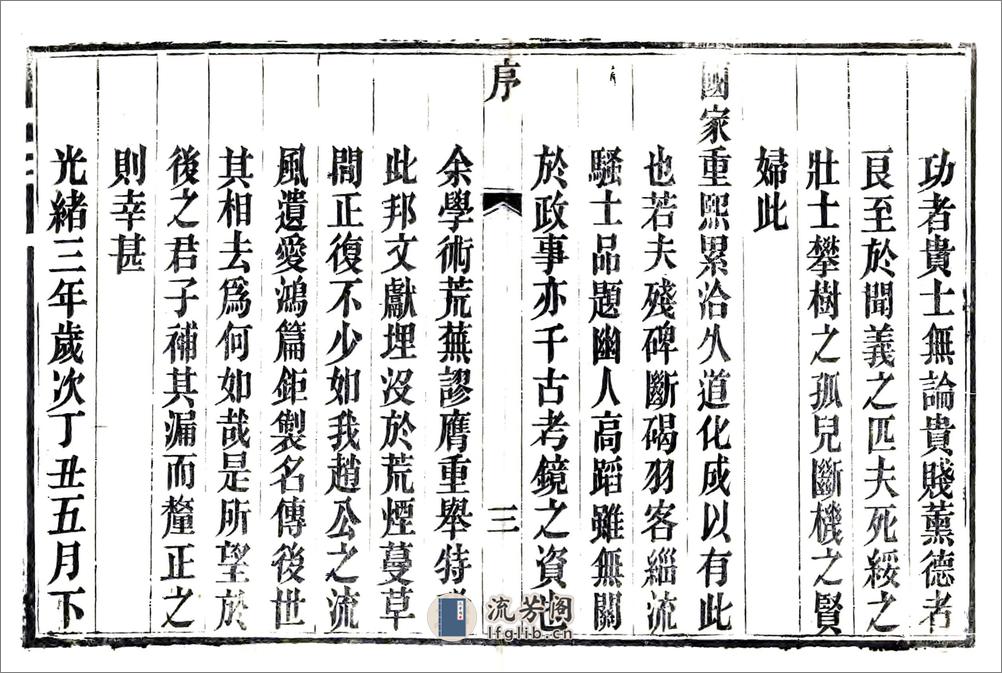 功者貴士無論貴賤薰德者
良至於聞義之匹夫死綏之
壯士攀樹之孤兒斷機之賢
婦此
國家重熙累洽久道化成以有此
也若夫殘碑斷碣羽客緇流
騷士品題幽人高蹈雖無關
於政事亦千古考鏡之資也
序
三
余學術荒蕪謬膺重舉特
此邦文獻埋沒於荒煙蔓草
間正復不少如我趙公之流
風遺愛鴻篇鉅製名傳後世
其相去爲何如哉是所望於
後之君子補其漏而釐正之
則幸甚
光緒三年歲次丁丑五月下
流芳閣
lfglib.cn